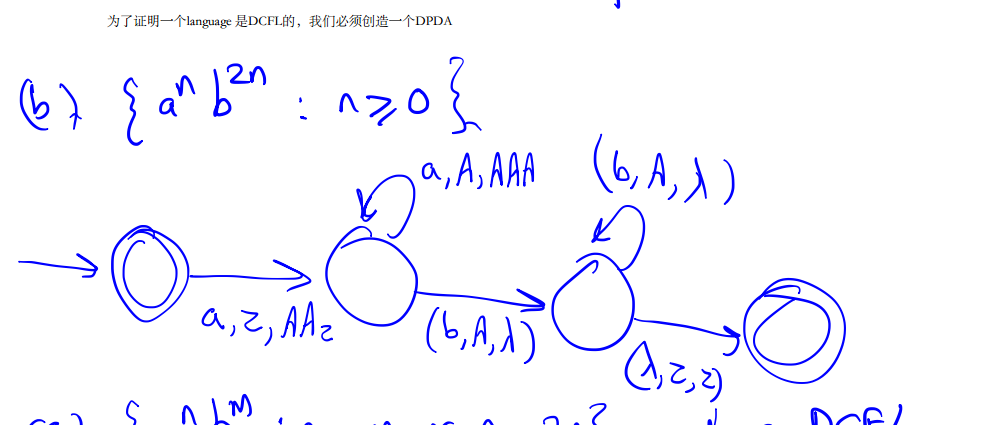 为了证明一个language 是DCFL的，我们必须创造一个DPDA
(b) { aⁿ b²ⁿ : n ≥ 0 }
a, A, AAA
(b, A, λ)
a, z, AAz
(b, A, λ)
(λ, z, z)